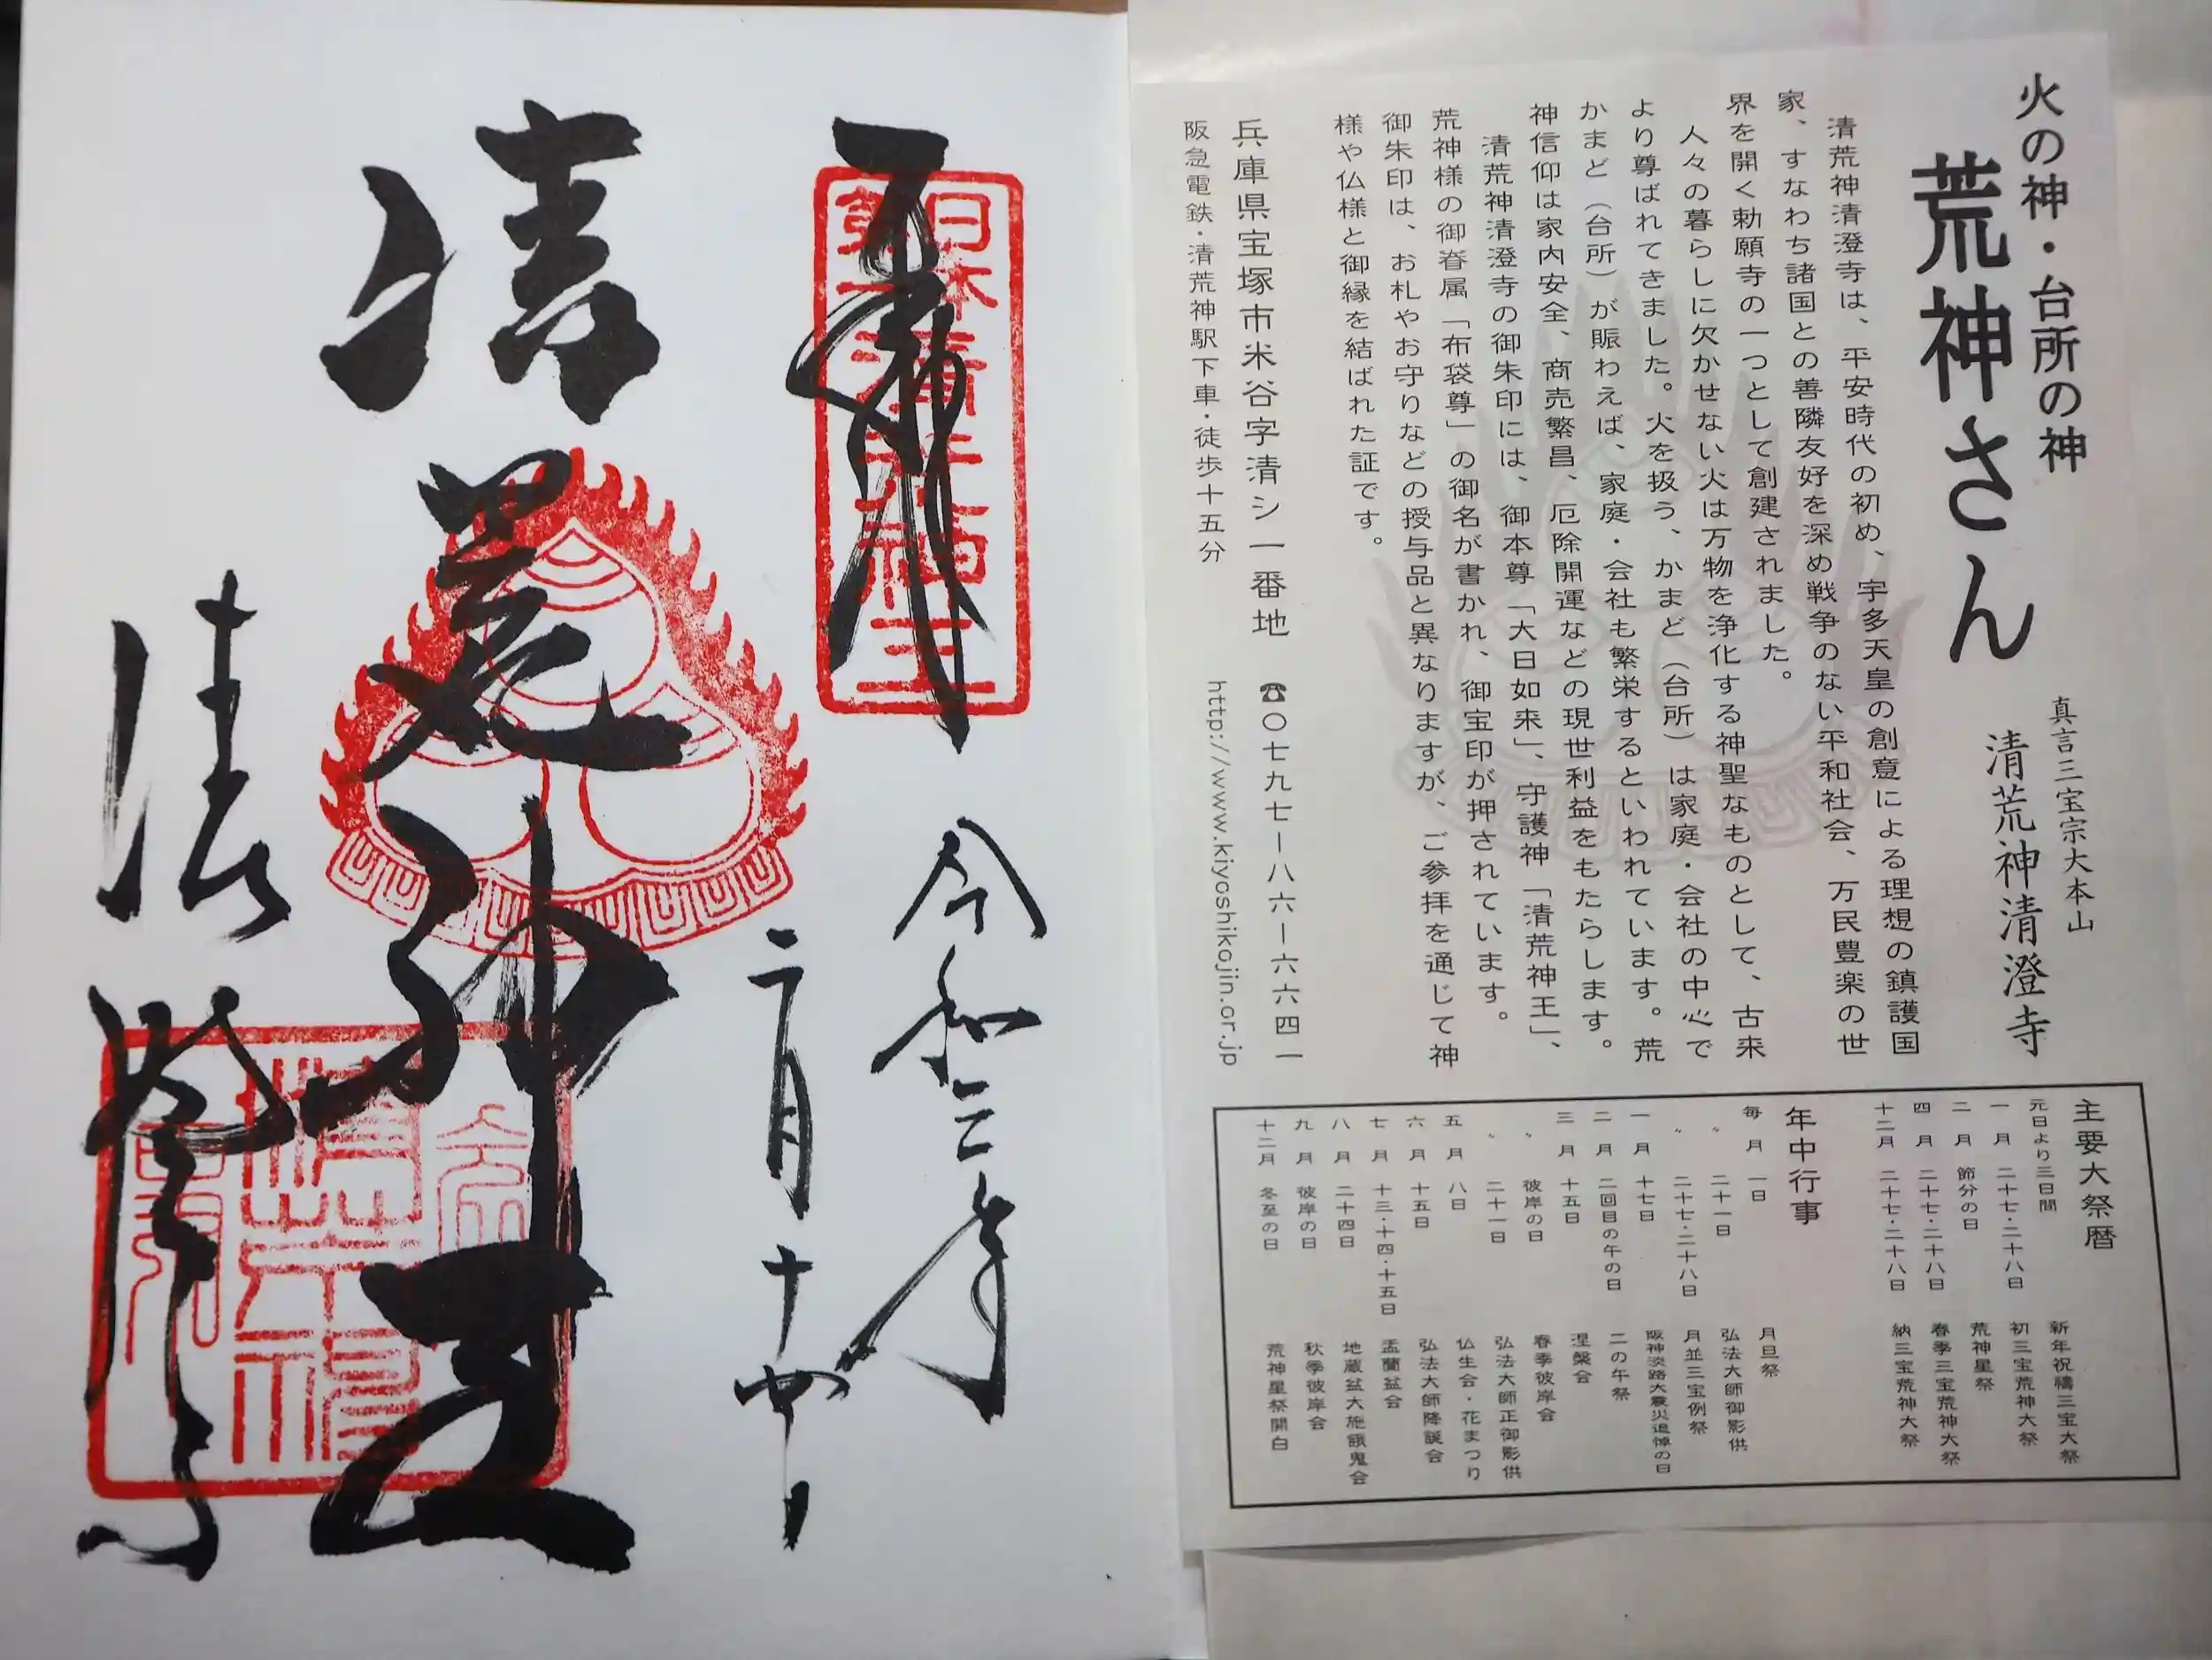 火の神・台所の神
荒神さん
真言三宝宗大本山
清荒神清澄寺
清荒神清澄寺は、平安時代の初め、宇多天皇の創意による理想の鎮護国
家、すなわち諸国との善隣友好を深め戦争のない平和社会、万民豊楽の世
界を開く勅願寺の一つとして創建されました。
人々の暮らしに欠かせない火は万物を浄化する神聖なものとして、古来
より尊ばれてきました。火を扱う、かまど（台所）は家庭・会社の中心で
かまど（台所）が賑わえば、家庭・会社も繁栄するといわれています。荒
神信仰は家内安全、商売繁昌、厄除開運などの現世利益をもたらします。
清荒神清澄寺の御朱印には、御本尊「大日如来」、守護神「清荒神王」、
荒神様の御眷属「布袋尊」の御名が書かれ、御宝印が押されています。
御朱印は、お札やお守りなどの授与品と異なりますが、ご参拝を通じて神
様や仏様と御縁を結ばれた証です。
兵庫県宝塚市米谷字清シ一番地 ☎〇七九七ー八六ー六六四一
阪急電鉄・清荒神駅下車・徒歩十五分 http://www.kiyoshikojin.or.jp
主要大祭暦
元日より三日間 新年祝禱三宝大祭
一月 二十七・二十八日 初三宝荒神大祭
二月 節分の日 荒神星祭
四月 二十七・二十八日 春季三宝荒神大祭
十二月 二十七・二十八日 納三宝荒神大祭
年中行事
毎月 一日 月旦祭
〃 二十一日 弘法大師御影供
〃 二十七・二十八日 月並三宝例祭
一月 十七日 阪神淡路大震災追悼の日
二月 二回目の午の日 二の午祭
三月 十五日 涅槃会
〃 彼岸の日 春季彼岸会
〃 二十一日 弘法大師正御影供
五月 八日 仏生会・花まつり
六月 十五日 弘法大師降誕会
七月 十三・十四・十五日 盂蘭盆会
八月 二十四日 地蔵盆大施餓鬼会
九月 彼岸の日 秋季彼岸会
十二月 冬至の日 荒神星祭開白
奉拝
日本第一清荒神王
令和三年
二月十四日
清荒神王
清澄寺